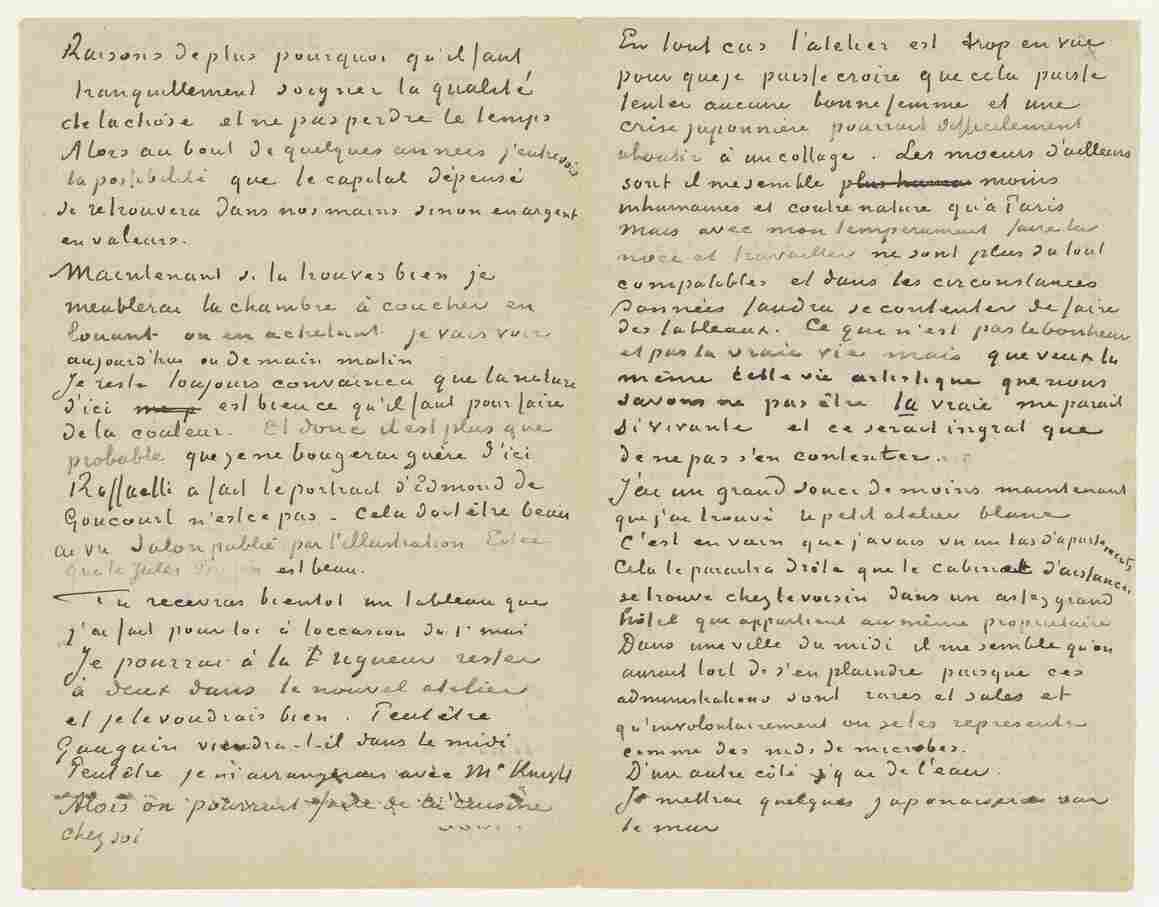 Raisons de plus pourquoi qu'il faut
tranquillement soigner la qualité
de la chose et ne pas perdre le temps
Alors au bout de quelques années j'entrevois
la possibilité que le capital dépensé
se retrouvera dans nos mains sinon en argent
en valeurs.
Maintenant si tu trouves bien je
meublerai la chambre à coucher en
louant ou en achetant je vais voir
aujourd'hui ou demain matin
Je reste toujours convaincu que la nature
d'ici est bien ce qu'il faut pour faire
de la couleur. Et donc il est plus que
probable que je ne bougerai guère d'ici
Raffaelli a fait le portrait d'Edmond de
Goncourt n'est ce pas - Cela doit être beau
ai vu Salon publié par l'illustration Est ce
que le Jules est beau.
Tu recevras bientot un tableau que
j'ai fait pour toi à l'occasion du 1er mai
Je pourrai à la rigueur rester
à deux dans le nouvel atelier
et je le voudrais bien. Peutêtre
Gauguin viendra-t-il dans le midi
Peutêtre je m'arrangerais avec McKnight
Alors on pourrait faire de la cuisine
chez soi
En tout cas l'atelier est trop en vue
pour que je puisse croire que cela puisse
tenter aucune bonne femme et une
crise juponnière pourrait difficilement
aboutir à un collage. Les moeurs d'ailleurs
sont il me semble plus humai moins
inhumaines et contre nature qu'à Paris
Mais avec mon temperament faire la
noce et travailler ne sont plus du tout
compatables et dans les circonstances
données faudra se contenter de faire
des tableaux. Ce qui n'est pas le bonheur
et pas la vraie vie mais que veux tu
même cette vie artistique que nous
savons ne pas être la vraie me parait
si vivante et ce serait ingrat que
de ne pas s'en contenter.
J'ai un grand souci de moins maintenant
que j'ai trouvé le petit atelier blanc
C'est en vain que j'avais vu un tas d'apartements
Cela te paraitra drôle que le cabinet d'aisances
se trouve chez le voisin dans un assez grand
hôtel qui appartient au même propriétaire
Dans une ville du midi il me semble qu'on
aurait tort de s'en plaindre puisque ces
administrations sont rares et sales et
qu'involontairement on se les represente
comme des nids de microbes.
D'un autre côté j'y ai de l'eau.
Je mettrai quelques japonaiseries sur
le mur